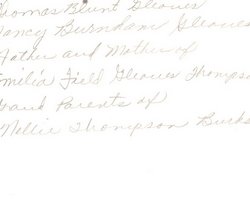 Thomas Blunt Gleaves
Nancy Burndam Gleaves
Father and Mother of
Emilia Field Gleaves Thompson
Grand Parents of
Nellie Thompson